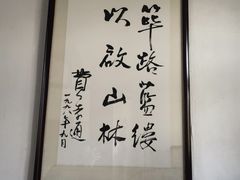 筚路蓝缕
以啟山林
費孝通
一九九八年九月